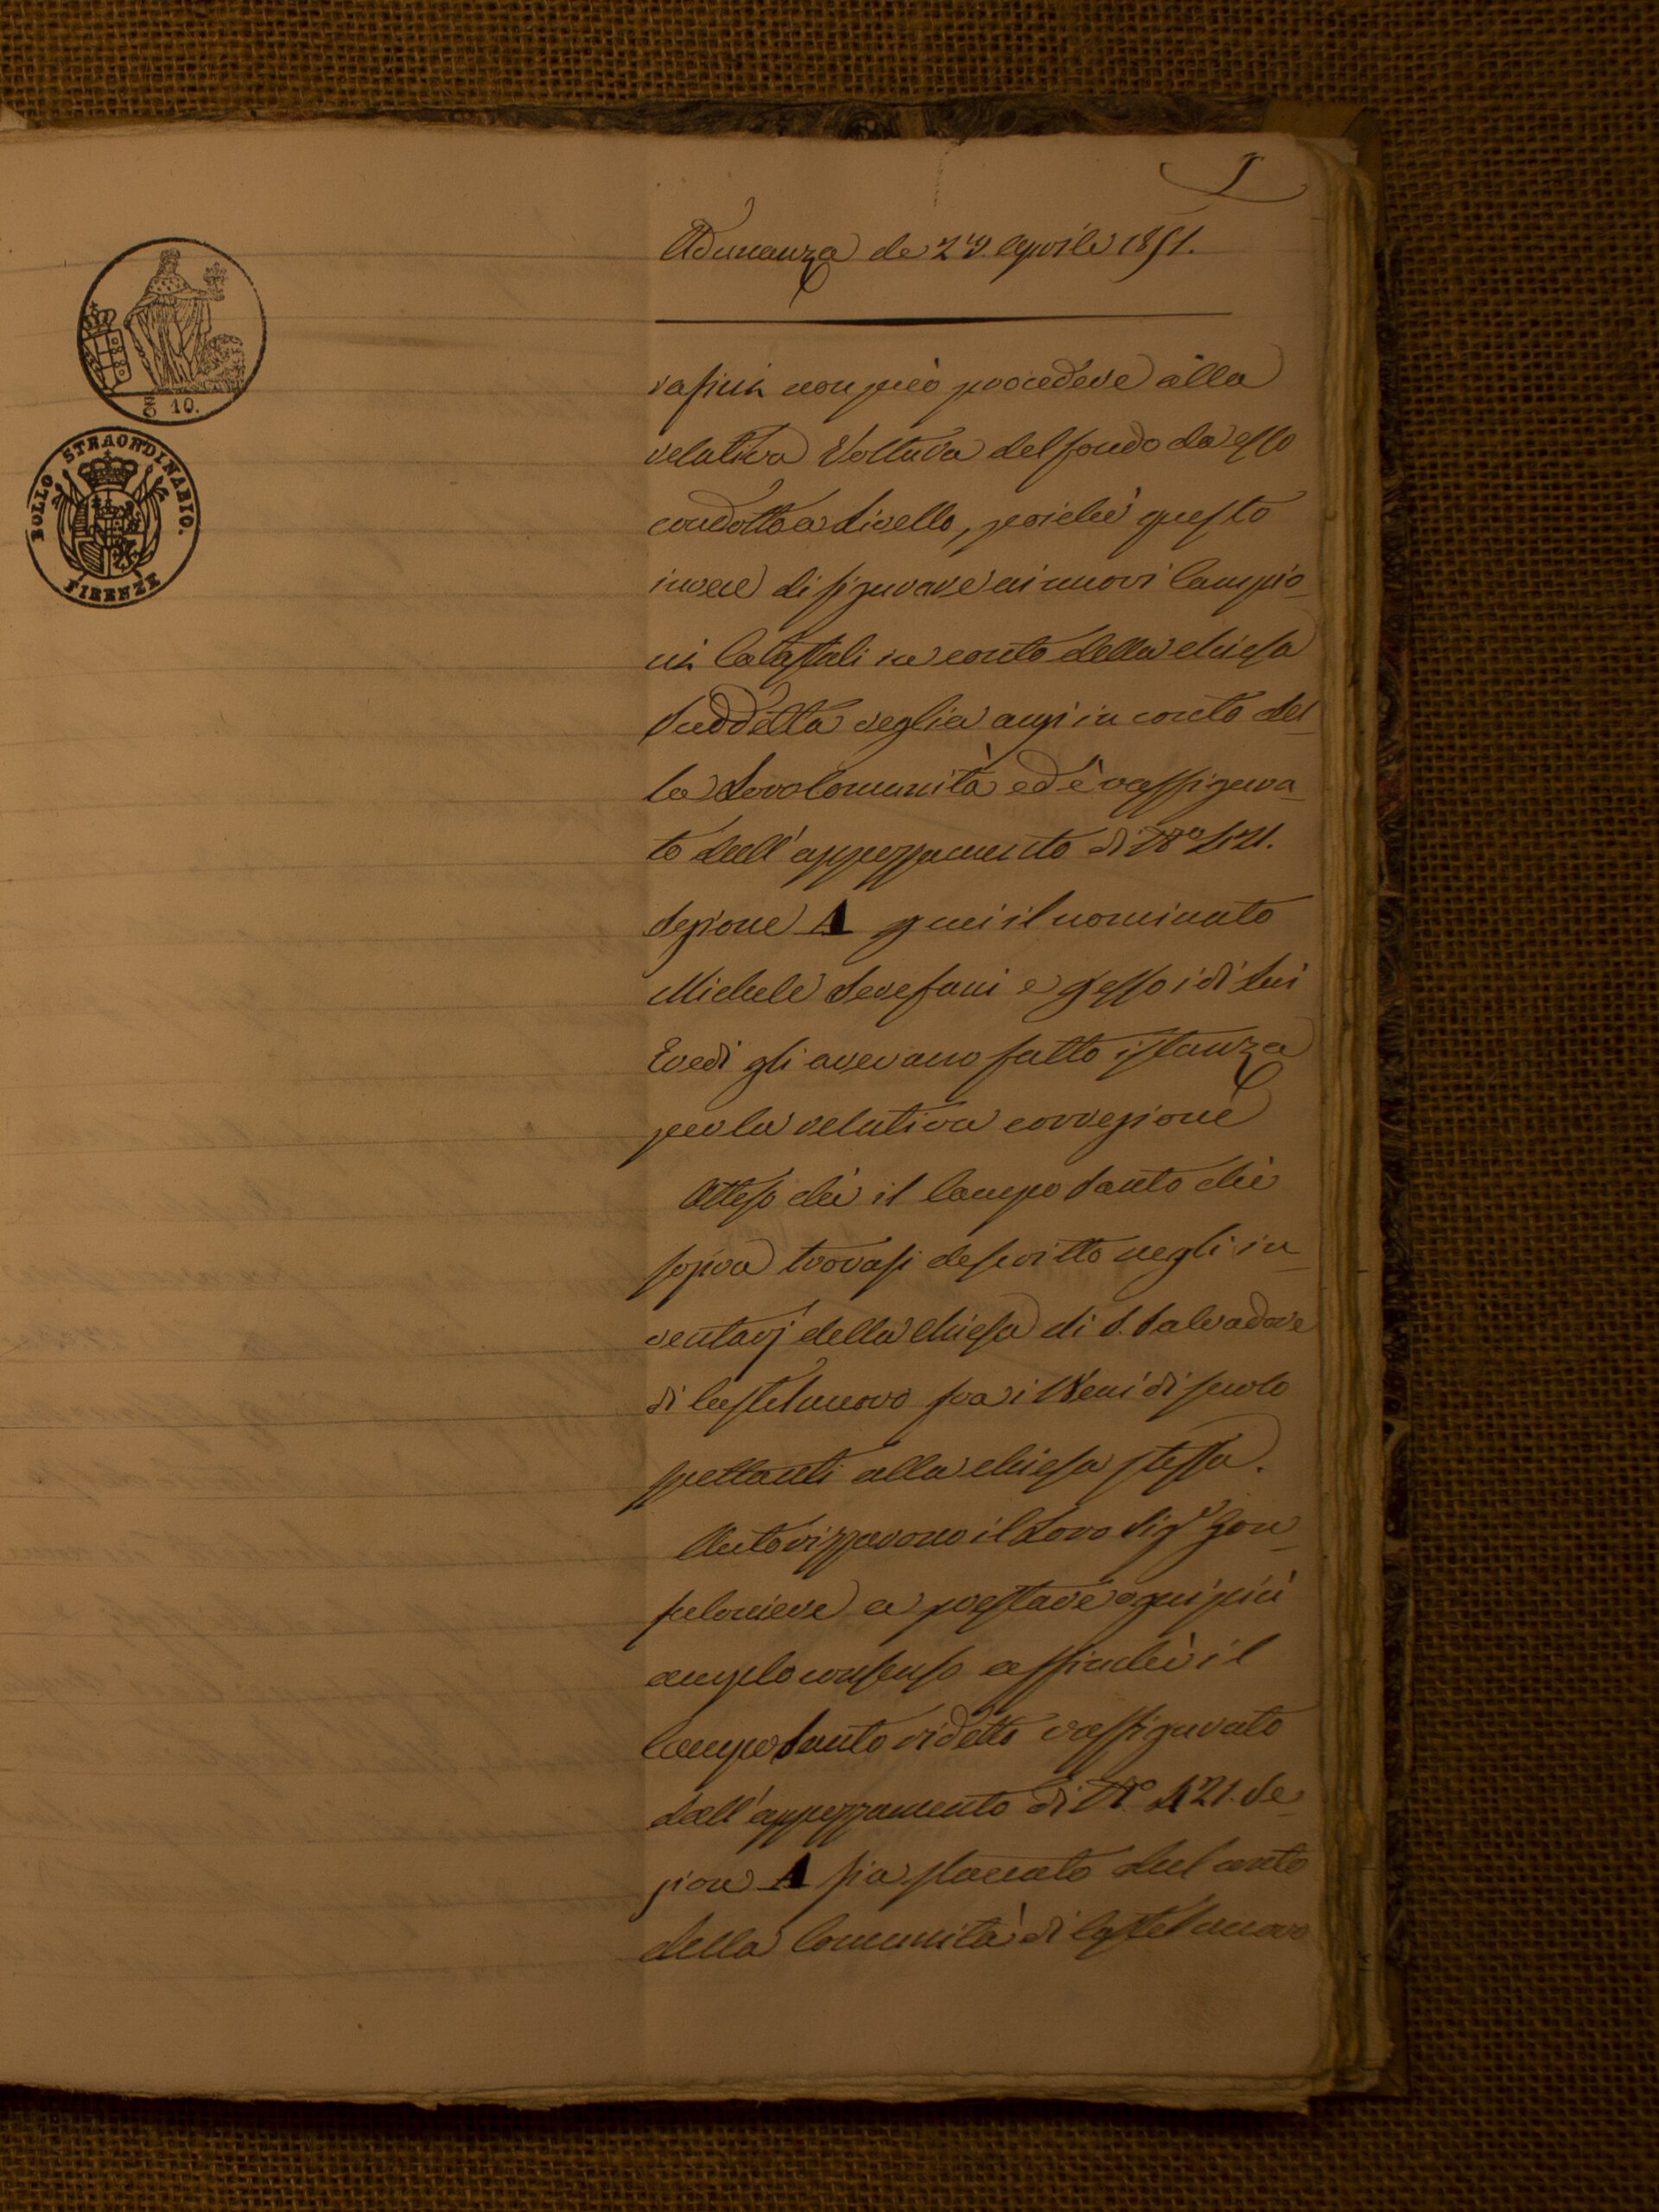 I
Adunanza de 29. Aprile 1851.
C 10.
BOLLO STRAORDINARIO.
FIRENZE
rafini non può procedere alla
relativa Voltura del fondo da esso
condotto a Livello, poichè questo
invece di figurare ai nuovi Campio-
ni Catastali in conto della Chiesa
suddetta veglia anzi in conto del-
la Loro Comunità ed è raffigura-
to dall'appezzamento di N° 421.
Sezione A quei il nominato
Michele Serefani e gesso i di Lui
Eredi gli avevano fatto istanza
per la relativa correzione
Atteso chè il Campo Santo che
sopra trovasi descritto negli in-
ventarj della Chiesa di S. Salvadore
di Castelnuovo fra i Beni di suolo
spettanti alla Chiesa stessa.
Autorizzarono il Loro Sig.r Gon-
faloniere a prestare ogni più
ampio consenso affinchè il
Campo Santo ridetto raffigurato
dall'appezzamento di N° 421. Se-
zione A sia staccato dal conto
della Comunità di Castelnuovo